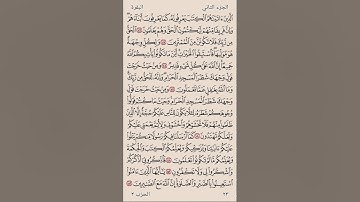 الجزء الثاني البقرة
ٱلَّذِينَ ءَاتَيْنَٰهُمُ ٱلْكِتَٰبَ يَعْرِفُونَهُۥ كَمَا يَعْرِفُونَ أَبْنَآءَهُمْ
وَإِنَّ فَرِيقًا مِّنْهُمْ لَيَكْتُمُونَ ٱلْحَقَّ وَهُمْ يَعْلَمُونَ ١٤٦ ٱلْحَقُّ
مِن رَّبِّكَ فَلَا تَكُونَنَّ مِنَ ٱلْمُمْتَرِينَ ١٤٧ وَلِكُلٍّ وِجْهَةٌ
هُوَ مُوَلِّيهَا فَٱسْتَبِقُوا۟ ٱلْخَيْرَٰتِ أَيْنَ مَا تَكُونُوا۟ يَأْتِ بِكُمُ ٱللَّهُ
جَمِيعًا إِنَّ ٱللَّهَ عَلَىٰ كُلِّ شَىْءٍ قَدِيرٌ ١٤٨ وَمِنْ حَيْثُ خَرَجْتَ
فَوَلِّ وَجْهَكَ شَطْرَ ٱلْمَسْجِدِ ٱلْحَرَامِ وَإِنَّهُۥ لَلْحَقُّ مِن
رَّبِّكَ وَمَا ٱللَّهُ بِغَٰفِلٍ عَمَّا تَعْمَلُونَ ١٤٩ وَمِنْ حَيْثُ خَرَجْتَ
فَوَلِّ وَجْهَكَ شَطْرَ ٱلْمَسْجِدِ ٱلْحَرَامِ وَحَيْثُ مَا كُنتُمْ فَوَلُّوا۟
وُجُوهَكُمْ شَطْرَهُۥ لِئَلَّا يَكُونَ لِلنَّاسِ عَلَيْكُمْ حُجَّةٌ إِلَّا ٱلَّذِينَ
ظَلَمُوا۟ مِنْهُمْ فَلَا تَخْشَوْهُمْ وَٱخْشَوْنِى وَلِأُتِمَّ نِعْمَتِى عَلَيْكُمْ
وَلَعَلَّكُمْ تَهْتَدُونَ ١٥٠ كَمَآ أَرْسَلْنَا فِيكُمْ رَسُولًا مِّنكُمْ يَتْلُوا۟
عَلَيْكُمْ ءَايَٰتِنَا وَيُزَكِّيكُمْ وَيُعَلِّمُكُمُ ٱلْكِتَٰبَ وَٱلْحِكْمَةَ
وَيُعَلِّمُكُم مَّا لَمْ تَكُونُوا۟ تَعْلَمُونَ ١٥١ فَٱذْكُرُونِىٓ أَذْكُرْكُمْ
وَٱشْكُرُوا۟ لِى وَلَا تَكْفُرُونِ ١٥٢ يَٰٓأَيُّهَا ٱلَّذِينَ ءَامَنُوا۟
ٱسْتَعِينُوا۟ بِٱلصَّبْرِ وَٱلصَّلَوٰةِ إِنَّ ٱللَّهَ مَعَ ٱلصَّٰبِرِينَ ١٥٣
٢٣ الحزب ٣